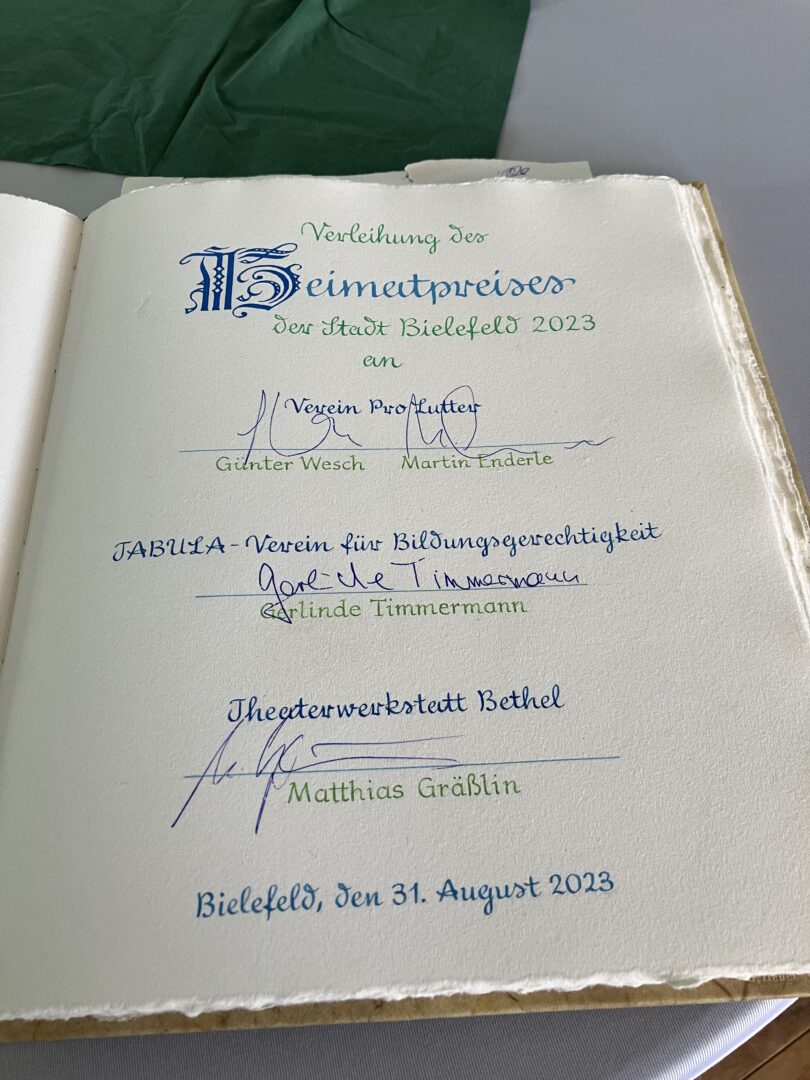 Verleihung des
Heimatpreises
der Stadt Bielefeld 2023
an
Verein Pro Lutter
Günter Wesch Martin Enderle
TABULA - Verein für Bildungsgerechtigkeit
Gerlinde Timmermann
Gerlinde Timmermann
Theaterwerkstatt Bethel
Matthias Gräßlin
Bielefeld, den 31. August 2023